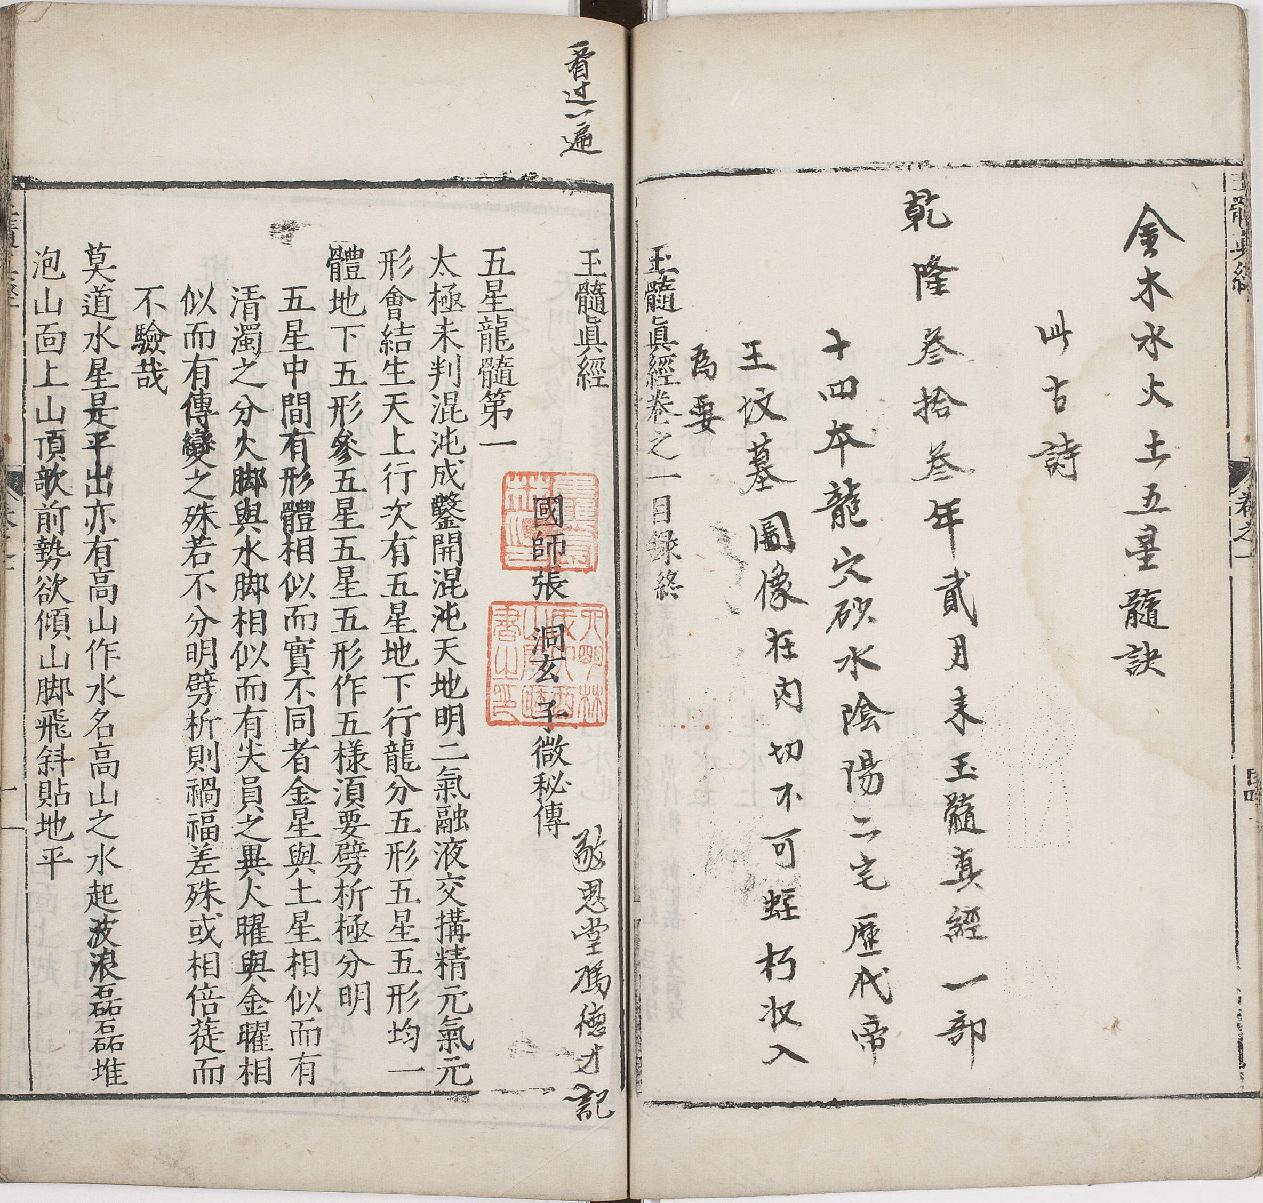 金木水火土五星髓訣
此古詩
乾隆叁拾叁年貳月來玉髓真經一部
十四本龍穴砂水陰陽二宅歷代帝
王坟墓圖像在內切不可蛀朽收入
為要
玉髓眞經卷之一目録終
看过一遍
玉髓眞經
國師張 洞玄 子微秘傳
敬思堂馮德才記
五星龍髓第一
太極未判混沌成鑿開混沌天地明二氣融液交搆精元氣元
形會結生天上行次有五星地下行龍分五形五星五形均一
體地下五形參五星五星五形作五樣湏要劈析極分明
五星中間有形體相似而實不同者金星與土星相似而有
清濁之分火脚與水脚相似而有尖員之異火曜與金曜相
似而有傳變之殊若不分明劈析則禍福差殊或相倍蓰而
不驗哉
莫道水星是平出亦有高山作水名高山之水起波浪磊磊堆
泡山面上山頂欹前勢欲傾山脚飛斜貼地平
玉髓真經
卷之一